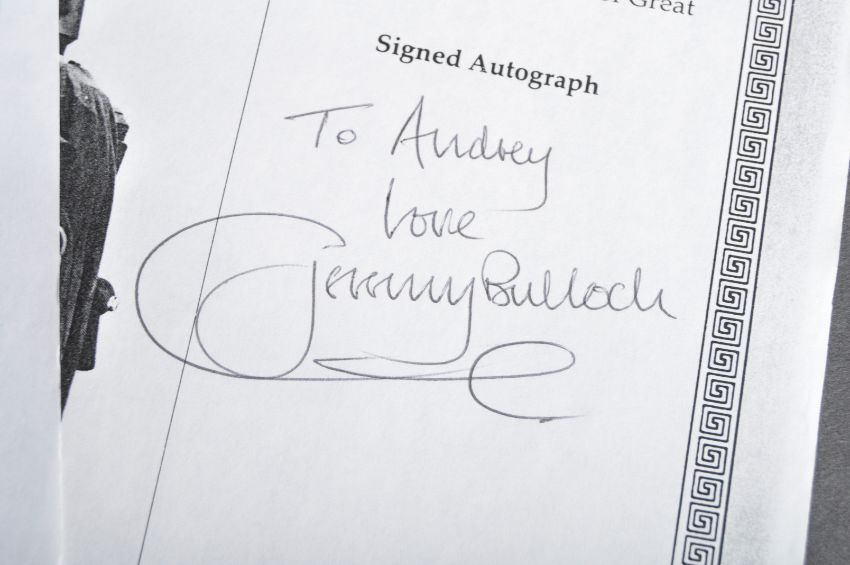 of Great
Signed Autograph
To Audrey
Love
Jeremy Bulloch